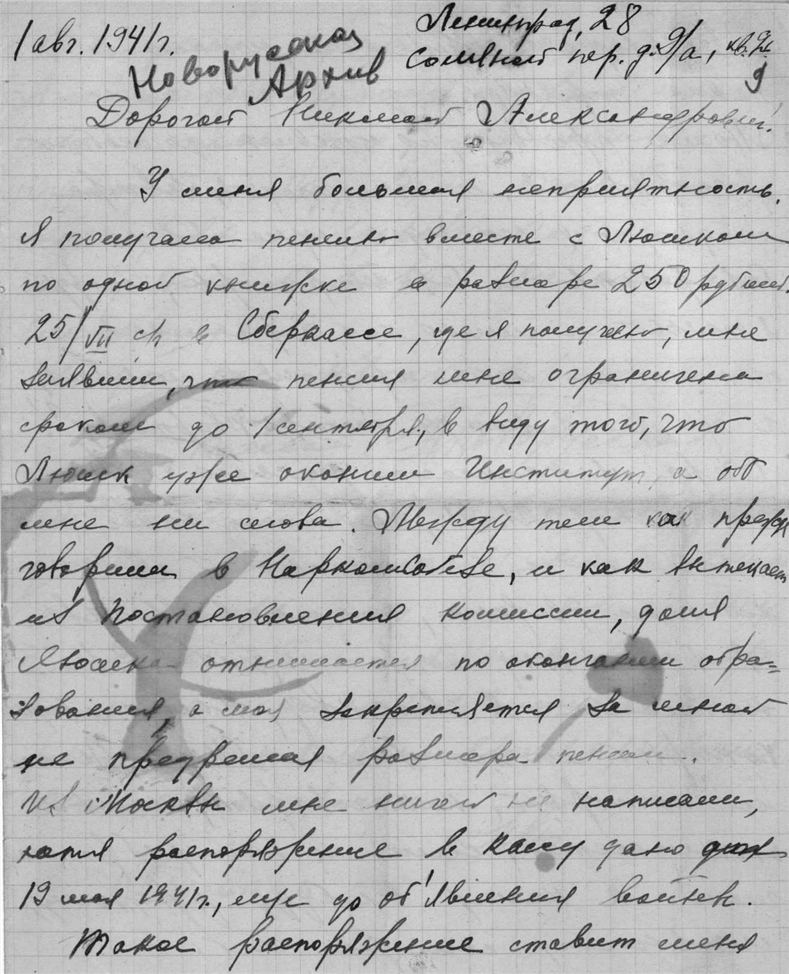 1 авг. 1941г.
Ленинград, 28
Соляной пер. д. 9/а, кв.
Новорусская
Архив
Дорогой Николай Александрович!
У меня большая неприятность.
Я получала пенсию вместе с Люсиком
по одной книжке в размере 250 рублей.
25/VII в Сберкассе, где я получаю, мне
заявили, что пенсия мне ограничена
сроком до 1 сентября, в виду того, что
Люсик уже окончил Институт, а обо
мне ни слова. Между тем как прежде
говорили в Наркомсобезе, и как вытекает
из Постановления комиссии, доля
Люсика отнимается по окончании обра=
зования, а моя закрепляется за мной
не предрешая размера пенсии.
Из Москвы мне ничего не написали,
хотя распоряжение в кассу дано
19 мая 1941г., еще до об'явления войны.
Такое распоряжение ставит меня